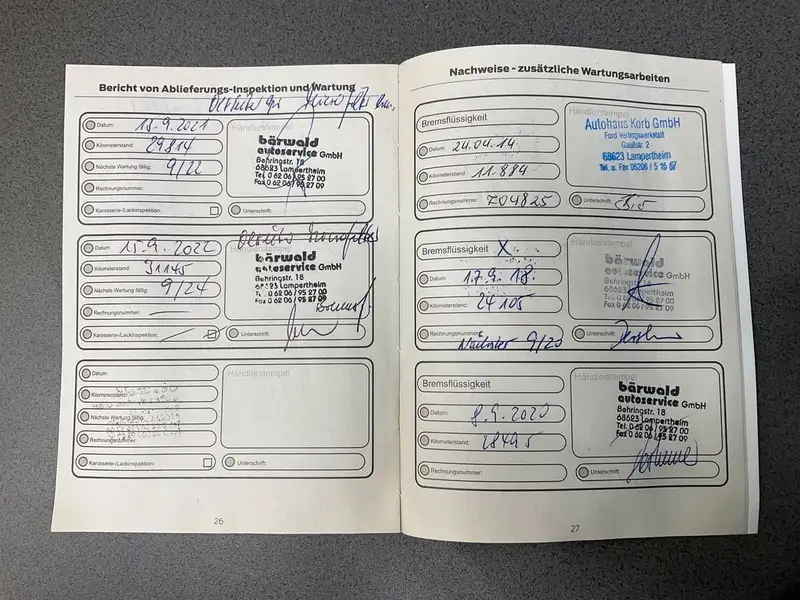 Bericht von Ablieferungs-Inspektion und Wartung
Datum: 15.9.2021
Kilometerstand: 29814
Nächste Wartung fällig: 9/22
Rechnungsnummer:
Karosserie-/Lackinspektion:
Händlerstempel
bärwald
autoservice GmbH
Behringstr. 18
68623 Lampertheim
Tel. 0 62 06 / 95 27 00
Fax 0 62 06 / 95 27 09
Unterschrift:
Datum: 15.9.2022
Kilometerstand: 31145
Nächste Wartung fällig: 9/24
Rechnungsnummer:
Karosserie-/Lackinspektion:
Händlerstempel
bärwald
autoservice GmbH
Behringstr. 18
68623 Lampertheim
Tel. 0 62 06 / 95 27 00
Fax 0 62 06 / 95 27 09
Unterschrift:
Datum:
Kilometerstand:
Nächste Wartung fällig:
Rechnungsnummer:
Karosserie-/Lackinspektion:
Händlerstempel
Unterschrift:
26
Nachweise - zusätzliche Wartungsarbeiten
Bremsflüssigkeit
Datum: 24.04.14
Kilometerstand: 11.884
Rechnungsnummer: 704825
Händlerstempel
Autohaus Korb GmbH
Ford Vertragswerkstatt
Gaußstr. 2
68623 Lampertheim
Tel. u. Fax 06206 / 5 16 67
Unterschrift:
Bremsflüssigkeit X
Datum: 17.9.18.
Kilometerstand: 24105
Rechnungsnummer:
Nächster 9/20
Händlerstempel
bärwald
autoservice GmbH
Behringstr. 18
68623 Lampertheim
Tel. 0 62 06 / 95 27 00
Fax 0 62 06 / 95 27 09
Unterschrift:
Bremsflüssigkeit
Datum: 8.9.2020
Kilometerstand: 28495
Rechnungsnummer:
Händlerstempel
bärwald
autoservice GmbH
Behringstr. 18
68623 Lampertheim
Tel. 0 62 06 / 95 27 00
Fax 0 62 06 / 95 27 09
Unterschrift:
27